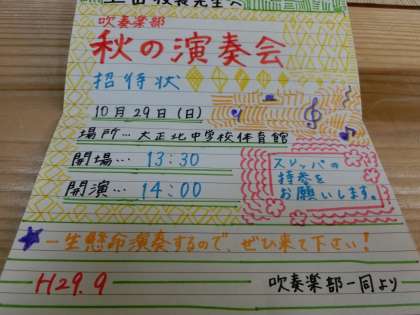 先生へ
吹奏楽部
秋の演奏会
招待状
10月29日(日)
場所…大正北中学校体育館
開場…13:30
開演…14:00
スリッパの
持参を
お願いします。
一生懸命演奏するので、ぜひ来て下さい!
H29.9
吹奏楽部一同より